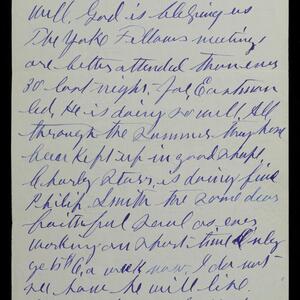 well, God is blessing us
The York Fellows meetings
are better attended than ever
30 last night. Joe Eastman
led, He is doing so well. All
through the summer they have
been kept up in good shape
Charley Sturr is doing fine
Philip Smith the same dear
faithful soul as ever
working on short time only
gets $6 a week now. I do not
see how he will live